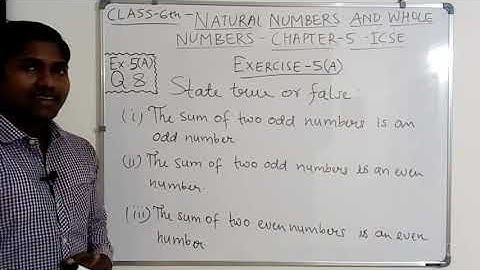 CLASS-6th - NATURAL NUMBERS AND WHOLE
NUMBERS - CHAPTER-5 - ICSE
Ex 5(A)
Q 8
EXERCISE-5(A)
State true or false:
(i) The sum of two odd numbers is an
odd number
(ii) The sum of two odd numbers is an even
number.
(iii) The sum of two even numbers is an even
number